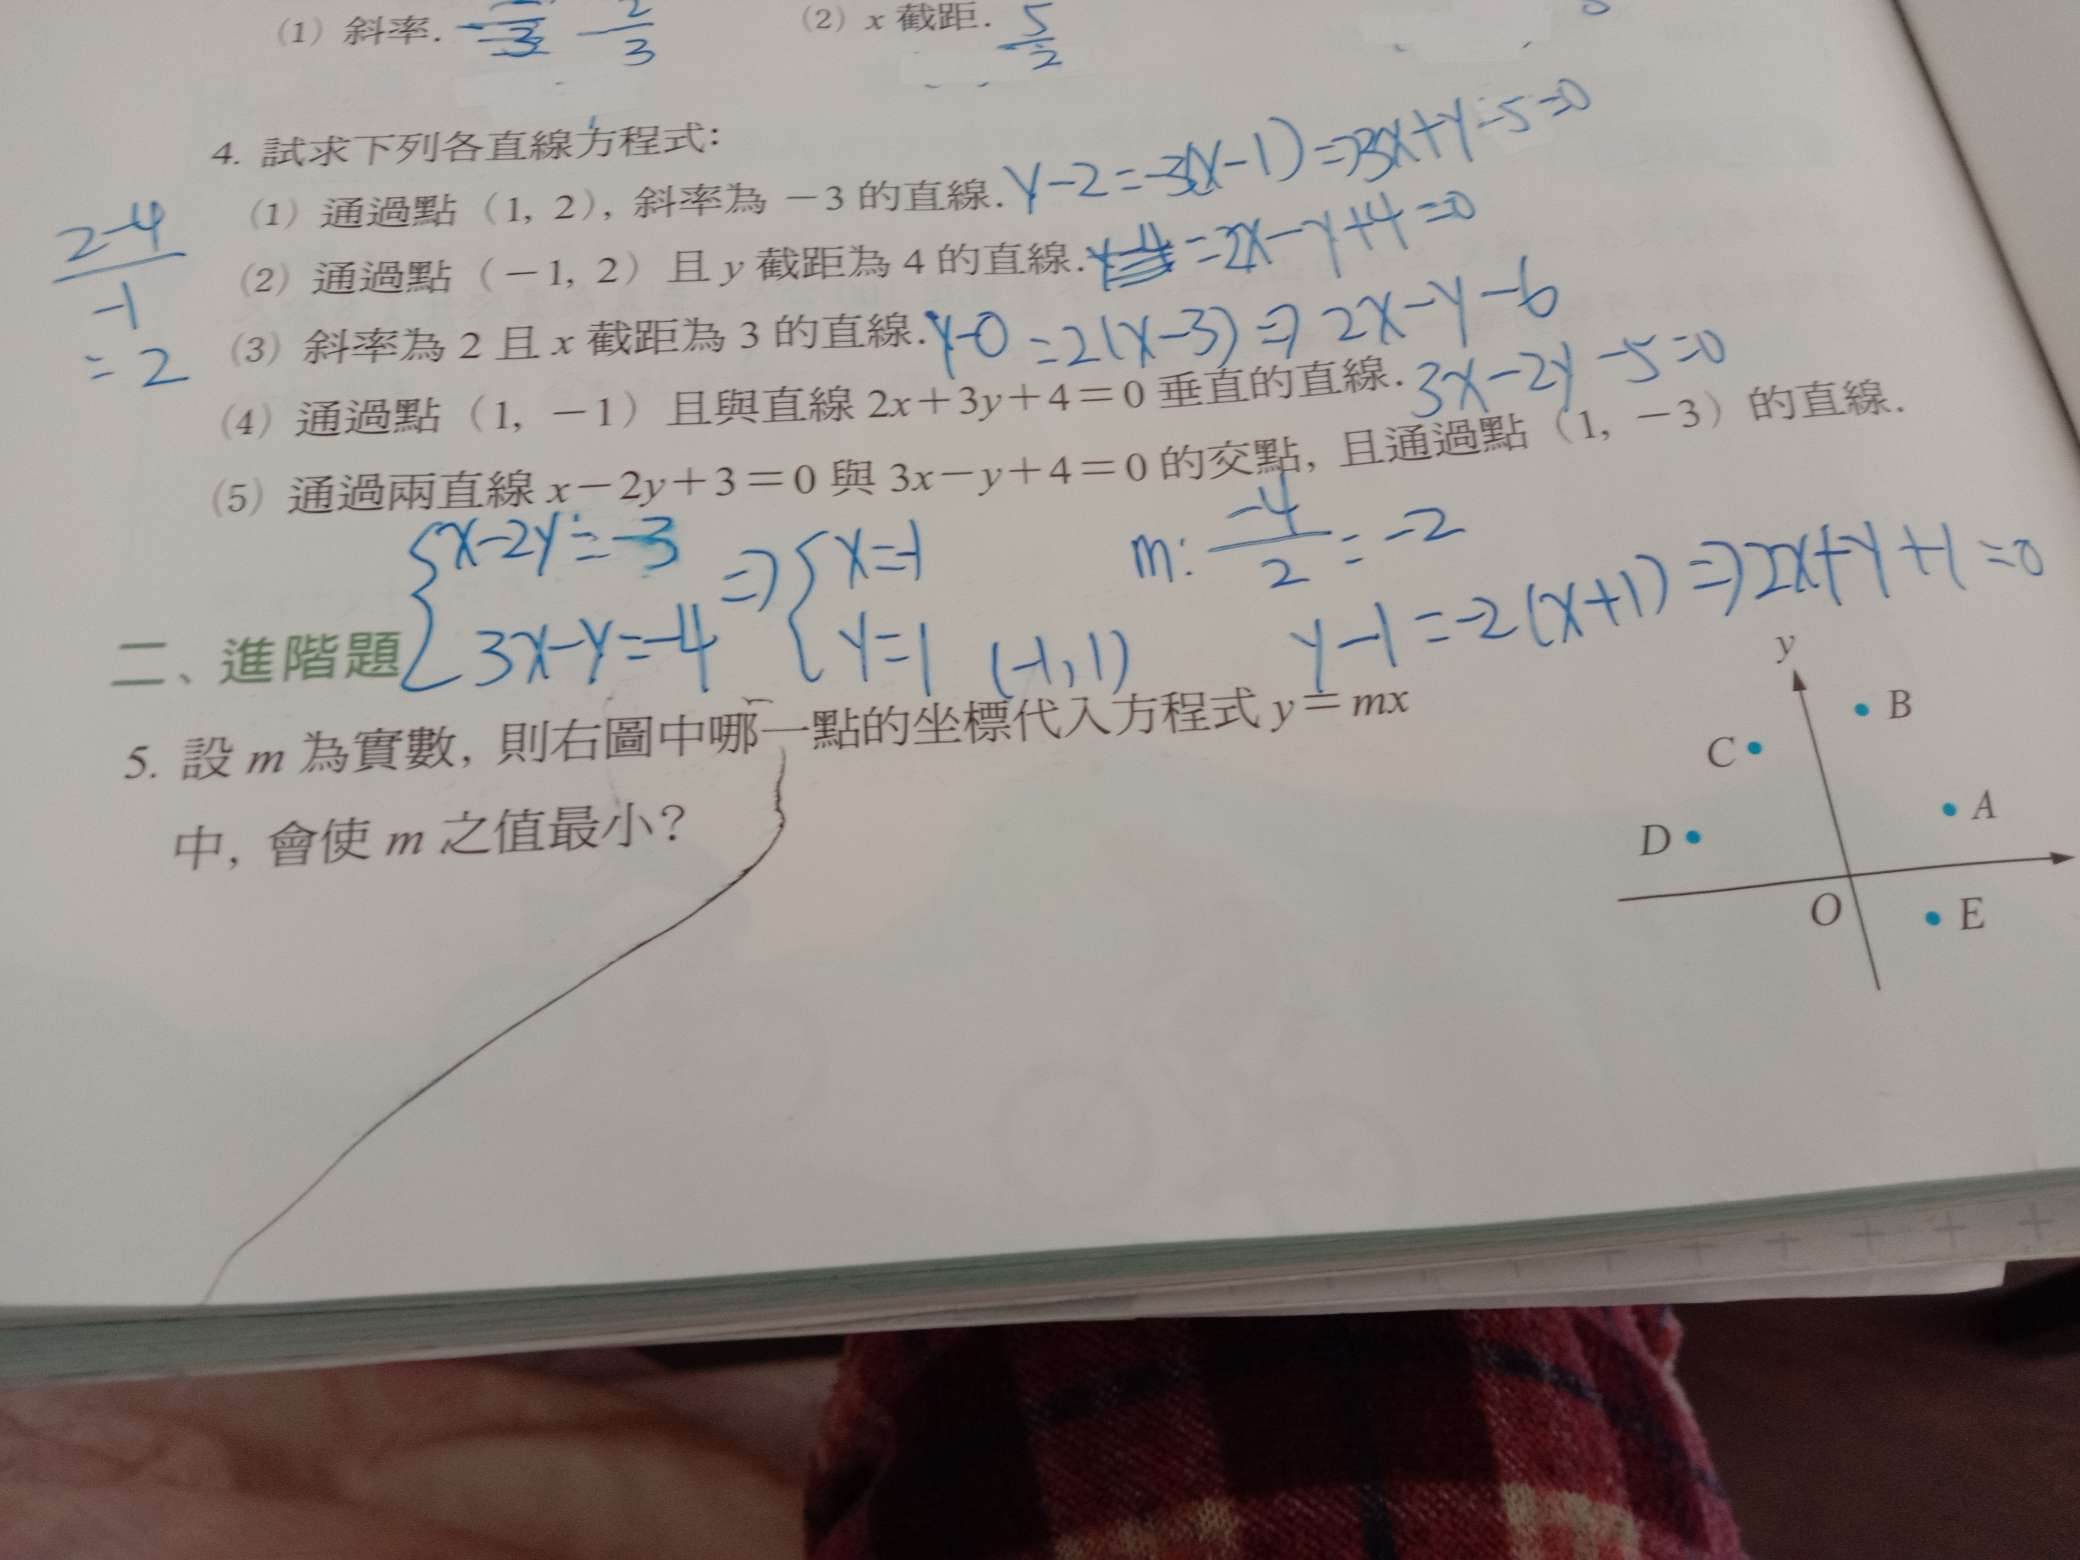 (1) 斜率. -2/3
(2) x 截距. 5/2
4. 試求下列各直線方程式:
(1) 通過點 (1, 2), 斜率為 -3 的直線. y-2=-3(x-1)⇒3x+y-5=0
(2) 通過點 (-1, 2) 且 y 截距為 4 的直線. =2x-y+4=0
2-4/-1
=2
(3) 斜率為 2 且 x 截距為 3 的直線. y-0=2(x-3)⇒2x-y-6
(4) 通過點 (1, -1) 且與直線 2x+3y+4=0 垂直的直線. 3x-2y-5=0
(5) 通過兩直線 x-2y+3=0 與 3x-y+4=0 的交點, 且通過點 (1, -3) 的直線.
{x-2y=-3 ⇒ {x=-1 m: -4/2=-2
3x-y=-4 y=1 (-1,1) y-1=-2(x+1)⇒2x+y+1=0
二、進階題
5. 設 m 為實數, 則右圖中哪一點的坐標代入方程式 y=mx
中, 會使 m 之值最小?
y
B
C
A
D
O
E